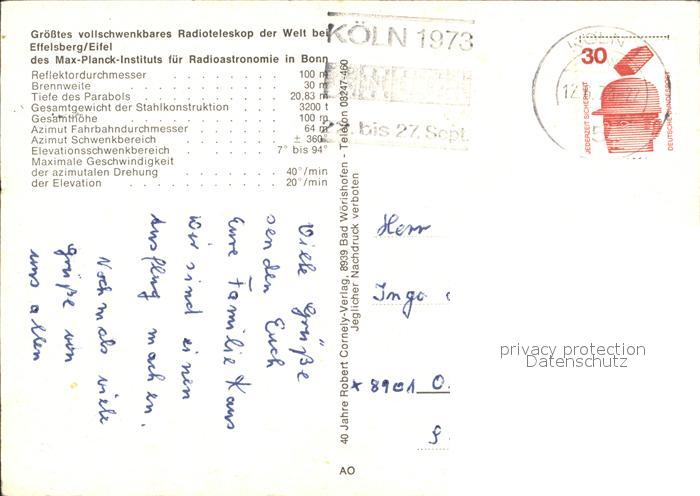 Größtes vollschwenkbares Radioteleskop der Welt bei
Effelsberg/Eifel
des Max-Planck-Instituts für Radioastronomie in Bonn
Reflektordurchmesser . . . . . . . . . . . . 100 m
Brennweite . . . . . . . . . . . . 30 m
Tiefe des Parabols . . . . . . . . . . . . 20,83 m
Gesamtgewicht der Stahlkonstruktion . . . . 3200 t
Gesamthöhe . . . . . . . . . . . . 100 m
Azimut Fahrbahndurchmesser . . . . . . . 64 m
Azimut Schwenkbereich . . . . . . . . . ± 360°
Elevationsschwenkbereich . . . . . . . 7° bis 94°
Maximale Geschwindigkeit
der azimutalen Drehung . . . . . . . . . 40°/min
der Elevation . . . . . . . . . . . . 20°/min
KÖLN 1973
bis 27. Sept.
KÖLN
30
JEDERZEIT SICHERHEIT
DEUTSCHE BUNDESPOST
Viele Grüße
senden Euch
Eure Familie Kaus
Wir sind einen
Ausflug machen.
Nochmals viele
Grüße von
uns allen
40 Jahre Robert Cornely-Verlag, 8939 Bad Wörishofen - Telefon 08247-460
Jeglicher Nachdruck verboten
Herr
Ingo
8901 O.
AO
privacy protection
Datenschutz